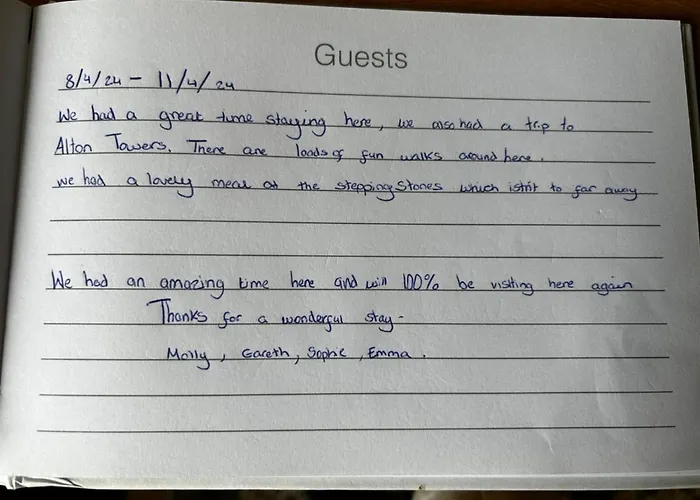 Guests
8/4/24 - 11/4/24
We had a great time staying here, we also had a trip to
Alton Towers. There are loads of fun walks around here.
we had a lovely meal at the stepping stones which isnt to far away
We had an amazing time here and will 100% be visiting here again
Thanks for a wonderful stay -
Molly, Gareth, Sophie, Emma.